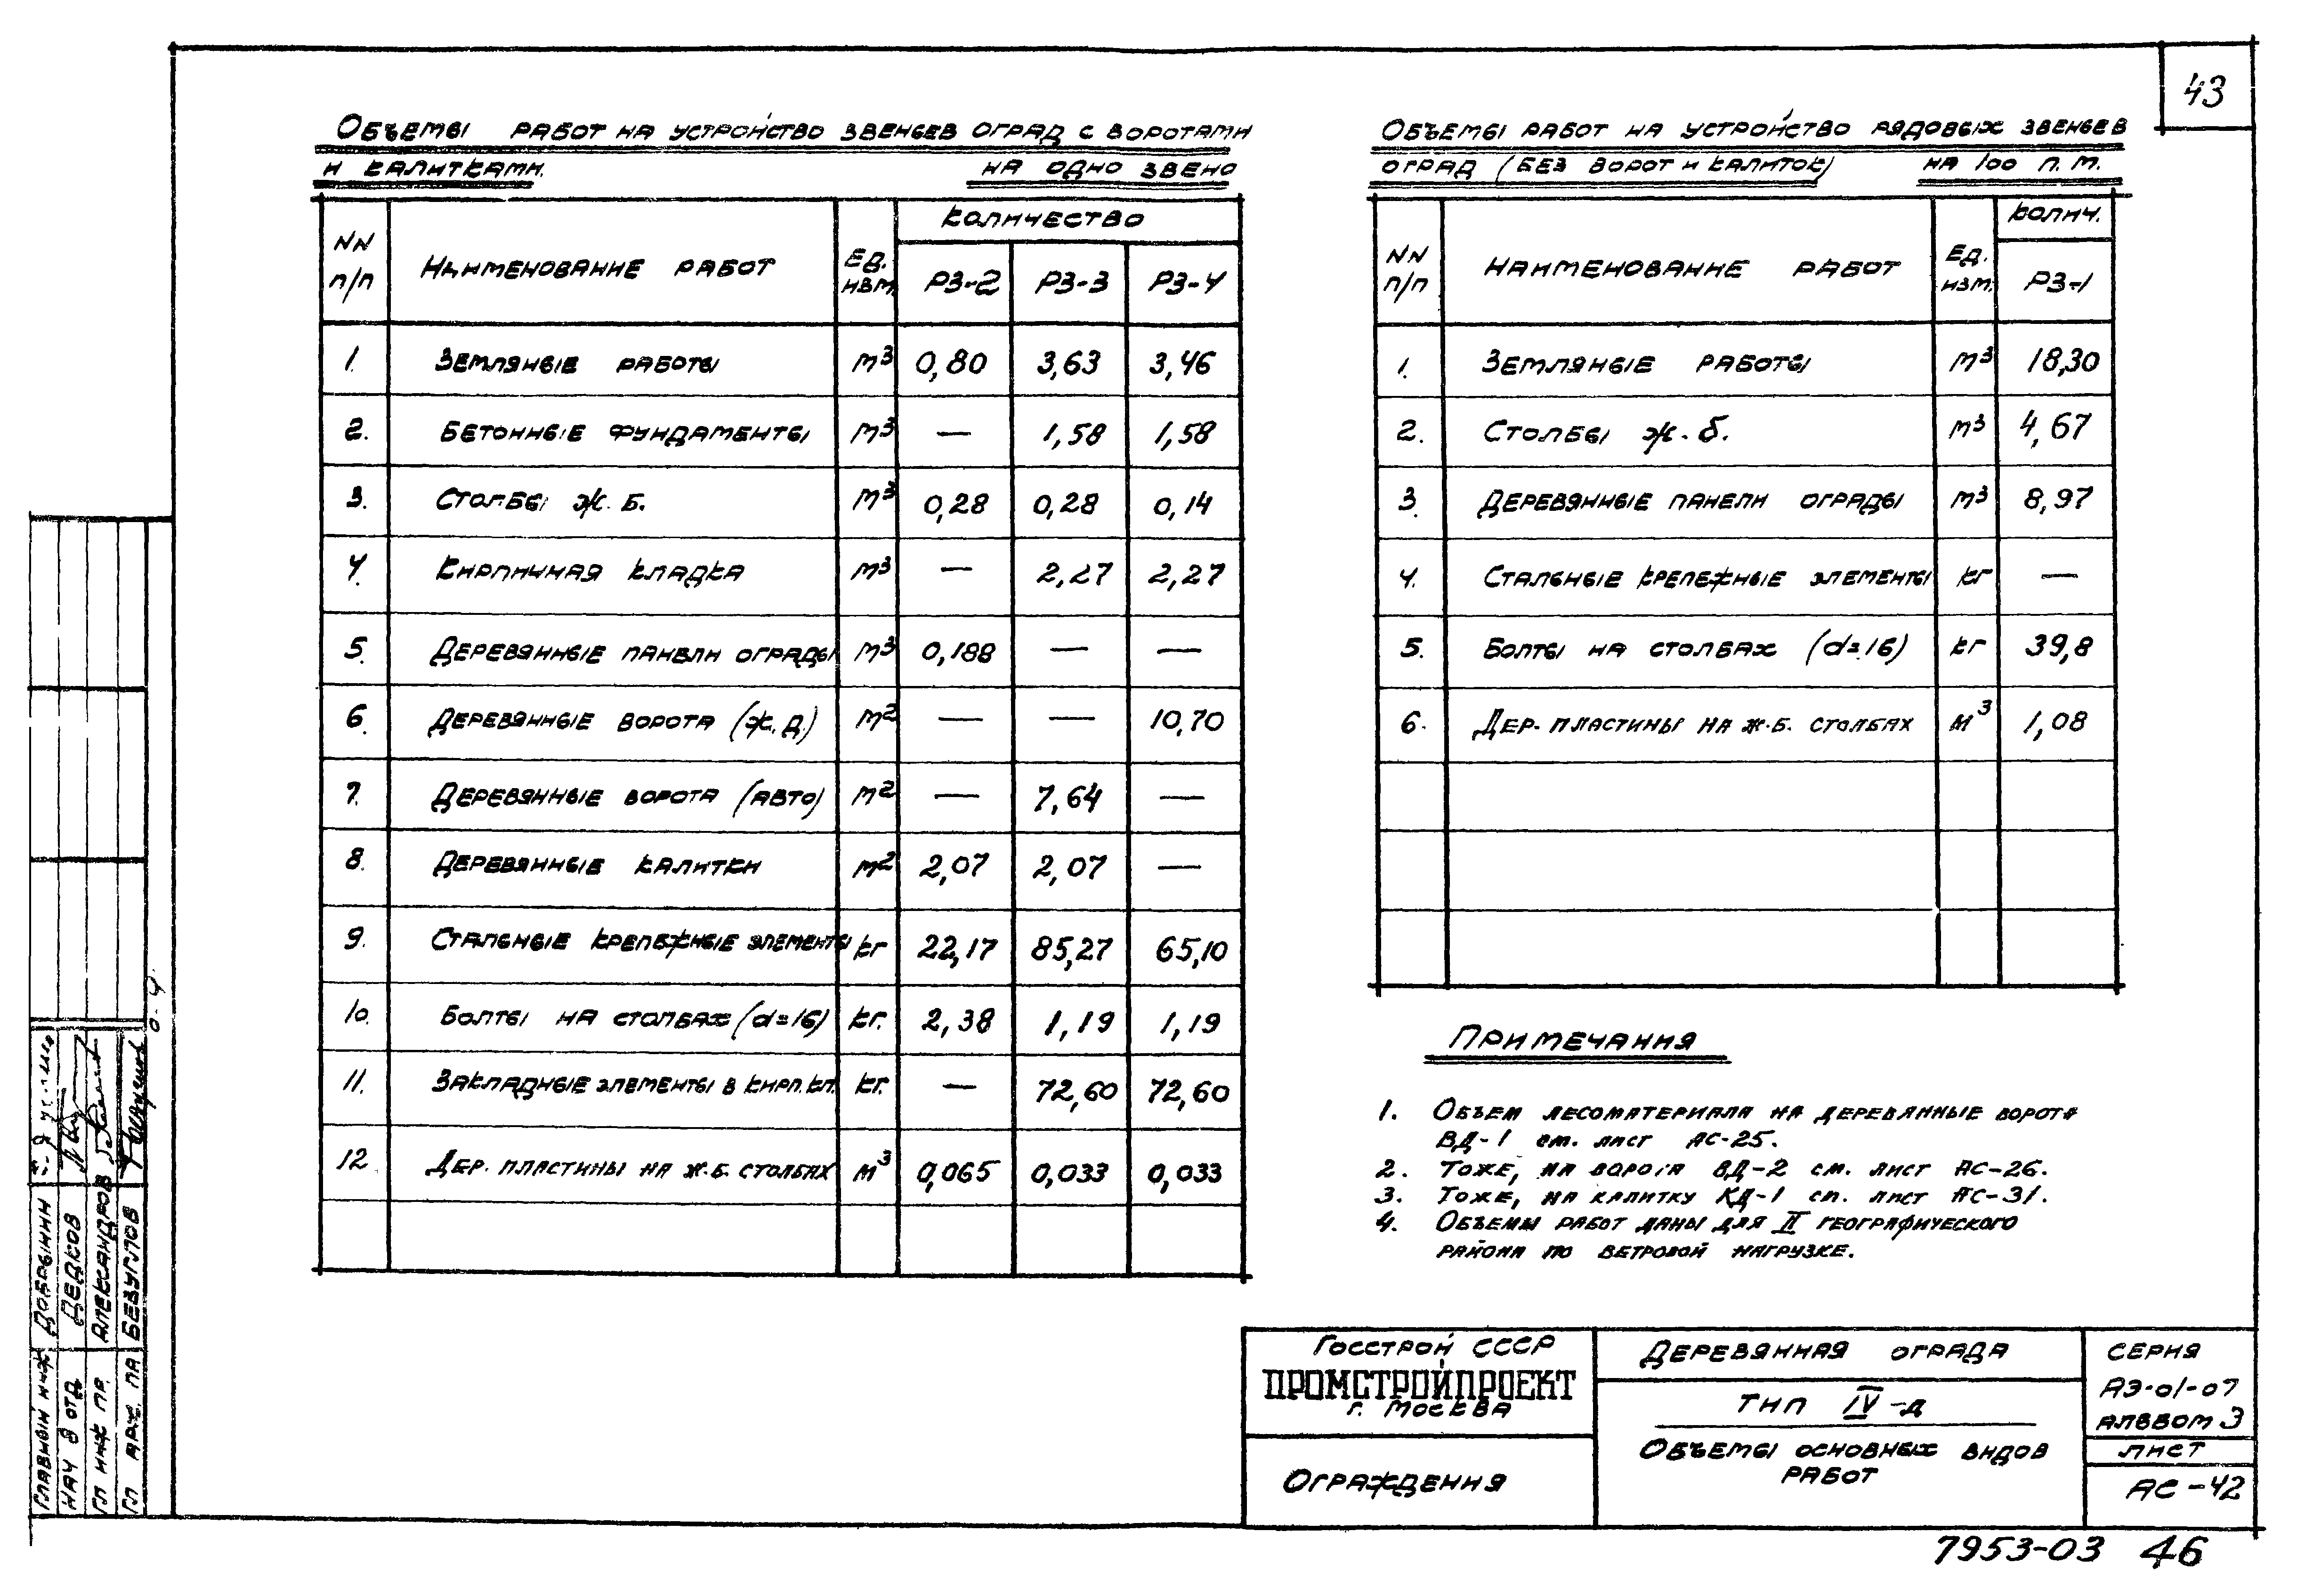 43
Объемы работ на устройство звеньев оград с воротами
и калитками. на одно звено
NN п/п Наименование работ Ед. изм. Количество
РЗ-2 РЗ-3 РЗ-4
1. Земляные работы м³ 0,80 3,63 3,46
2. Бетонные фундаменты м³ — 1,58 1,58
3. Столбы ж.б. м³ 0,28 0,28 0,14
4. Кирпичная кладка м³ — 2,27 2,27
5. Деревянные панели ограды м³ 0,188 — —
6. Деревянные ворота (ж.д.) м² — — 10,70
7. Деревянные ворота (авто) м² — 7,64 —
8. Деревянные калитки м² 2,07 2,07 —
9. Стальные крепежные элементы кг 22,17 85,27 65,10
10. Болты на столбах (d=16) кг. 2,38 1,19 1,19
11. Закладные элементы в кирп. кл. кг. — 72,60 72,60
12 Дер. пластины на ж.б. столбах м³ 0,065 0,033 0,033
Объемы работ на устройство рядовых звеньев
оград (без ворот и калиток) на 100 п.м.
NN п/п Наименование работ Ед. изм. Колич.
РЗ-1
1. Земляные работы м³ 18,30
2. Столбы ж.б. м³ 4,67
3. Деревянные панели ограды м³ 8,97
4. Стальные крепежные элементы кг —
5. Болты на столбах (d=16) кг 39,8
6. Дер. пластины на ж.б. столбах м³ 1,08
Примечания
1. Объем лесоматериала на деревянные ворота
ВД-1 см. лист АС-25.
2. Тоже, на ворота ВД-2 см. лист АС-26.
3. Тоже, на калитку КД-1 см. лист АС-31.
4. Объемы работ даны для II географического
района по ветровой нагрузке.
Госстрой СССР
ПРОМСТРОЙПРОЕКТ
г. Москва
Ограждения
Деревянная ограда
тип IV-д
Объемы основных видов
работ
серия
АЭ-01-07
альбом 3
лист
АС-42
7953-03 46
Главный инж Добрынин
Нач 8 отд Дедков
Гл инж пр. Александров
Гл арх. па Безуглов